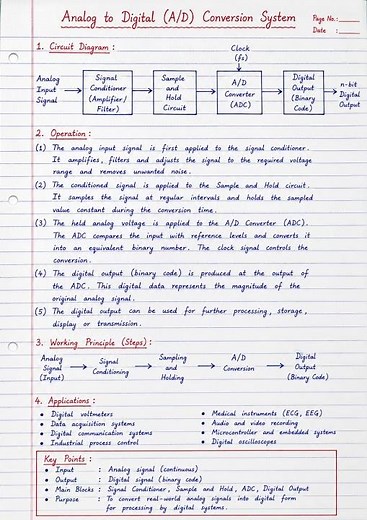 Analog to Digital (A/D) Conversion System
Page No.:
Date :
1. Circuit Diagram :
Clock
(fs)
Analog
Input
Signal
Signal
Conditioner
(Amplifier/
Filter)
Sample
and
Hold
Circuit
A/D
Converter
(ADC)
Digital
Output
(Binary
Code)
n-bit
Digital
Output
2. Operation :
(1) The analog input signal is first applied to the signal conditioner.
It amplifies, filters and adjusts the signal to the required voltage
range and removes unwanted noise.
(2) The conditioned signal is applied to the Sample and Hold circuit.
It samples the signal at regular intervals and holds the sampled
value constant during the conversion time.
(3) The held analog voltage is applied to the A/D Converter (ADC).
The ADC compares the input with reference levels and converts it
into an equivalent binary number. The clock signal controls the
conversion.
(4) The digital output (binary code) is produced at the output of
the ADC. This digital data represents the magnitude of the
original analog signal.
(5) The digital output can be used for further processing, storage,
display or transmission.
3. Working Principle (Steps) :
Analog
Signal
(Input)
Signal
Conditioning
Sampling
and
Holding
A/D
Conversion
Digital
Output
(Binary Code)
4. Applications :
• Digital voltmeters
• Data acquisition systems
• Digital communication systems
• Industrial process control
• Medical instruments (ECG, EEG)
• Audio and video recording
• Microcontroller and embedded systems
• Digital oscilloscopes
Key Points :
• Input : Analog signal (continuous)
• Output : Digital signal (binary code)
• Main Blocks : Signal Conditioner, Sample and Hold, ADC, Digital Output
• Purpose : To convert real-world analog signals into digital form
for processing by digital systems.